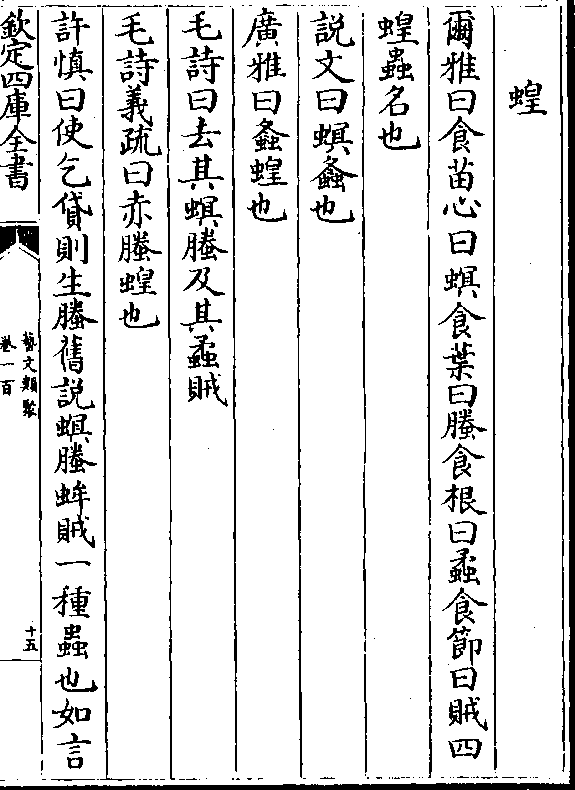 蝗
爾雅曰食苗心曰螟食葉曰螣食根曰蟊食節曰賊四
蝗蟲名也
説文曰螟螽也
廣雅曰螽蝗也
毛詩曰去其螟螣及其蟊賊
毛詩義疏曰赤螣蝗也
許慎曰使乞貸則生螣舊説螟螣蛑賊一種蟲也如言
欽定四庫全書
藝文類聚
卷一百
十五